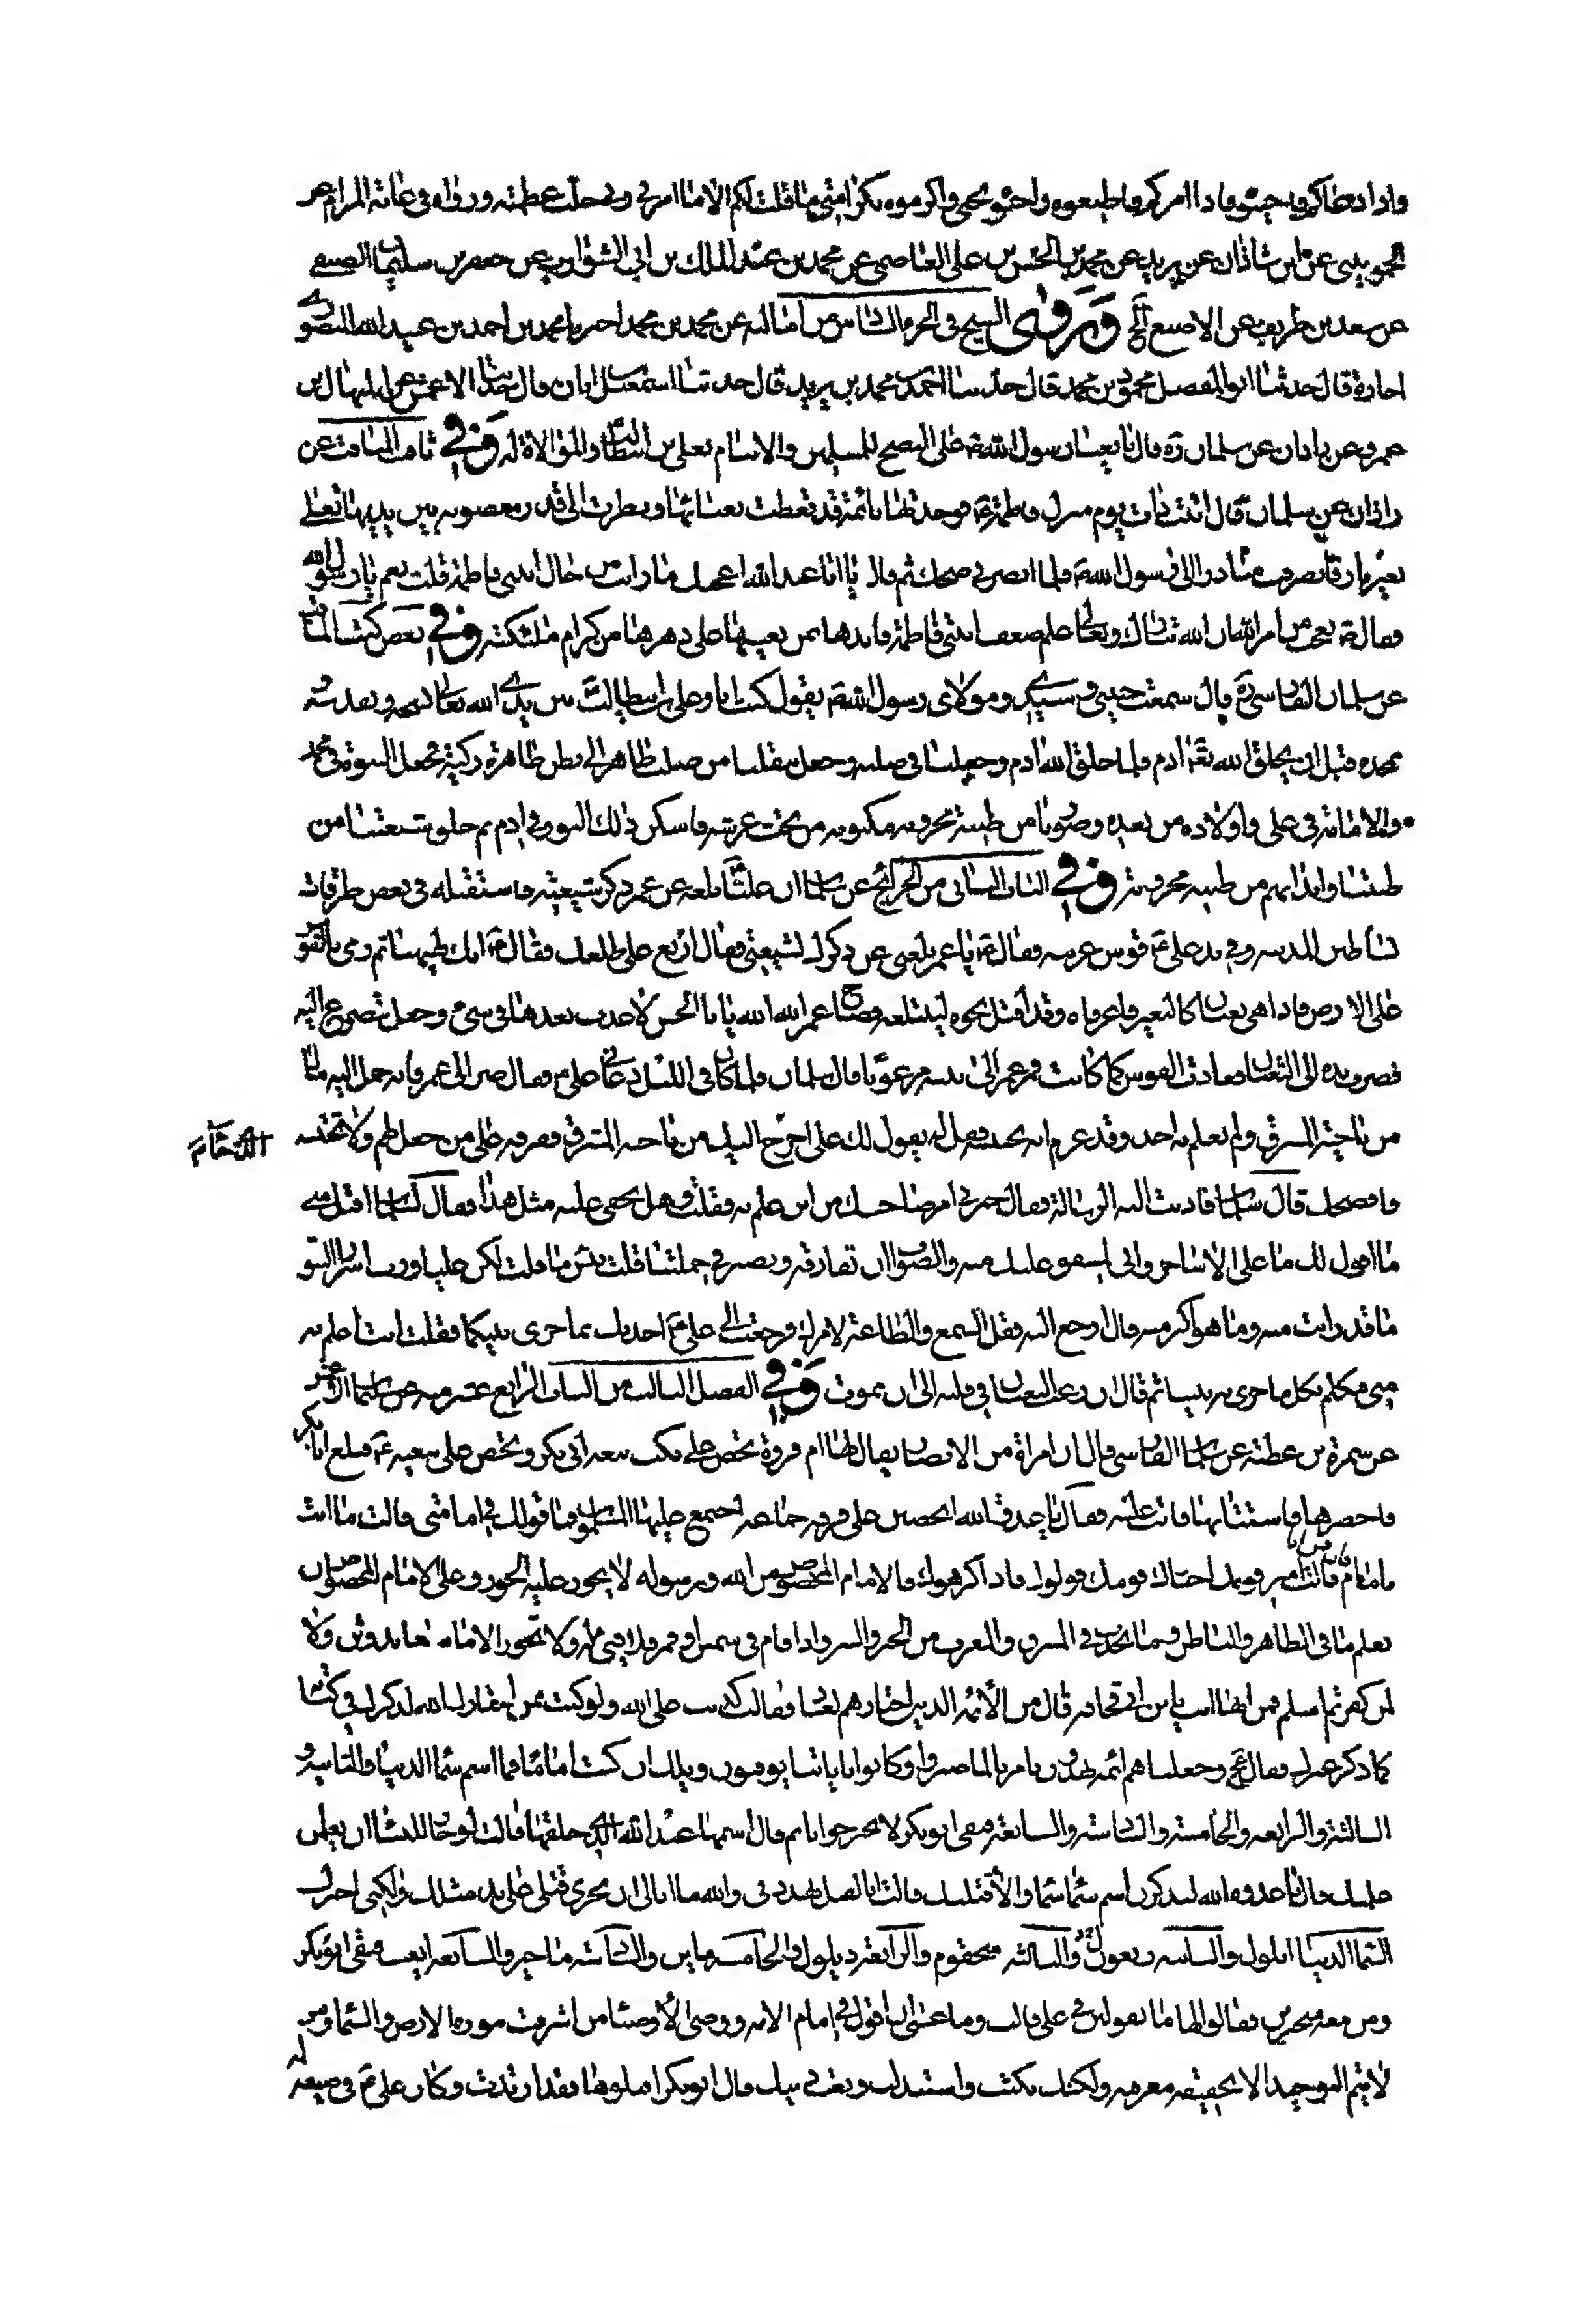 واذا دعاكم فاجيبوه واذا امركم فاطيعوه واحبوه بحبي واكرموه بكرامتي ما قلت لكم الا ما امرني ربي جلت عظمته ورواه في غاية المرام عن
الحمويني عن ابن شاذان عن محمد بن الحسن بن علي العاصمي عن محمد بن عبد الملك بن ابي الشوارب عن جعفر بن سليمان الضبعي
عن سعد بن طريف عن الاصبغ الخ وروى الشيخ في الجزء السادس من اماليه عن محمد بن محمد اخبرنا محمد بن احمد بن عبيد الله المنصوري
اجازة قال حدثنا ابو الفضل محمود بن محمد قال حدثنا احمد بن محمد بن يزيد قال حدثنا اسمعيل ابان قال حدثنا الاعمش عن المنهال بن
عمرو عن زاذان عن سلمان ره قال بايعنا رسول الله ص على النصح للمسلمين والايتمام بعلي بن ابيطالب والموالاة له وفي ثامن المناقب عن
زاذان عن سلمان قال اتيت ذات يوم منزل فاطمة ع فوجدتها نائمة قد تغطت بعبائها ونظرت الى قدر منصوبة بين يديها تغلي
بغير نار فانصرفت مبادرا الى رسول الله ص فلما ابصرني ضحك ثم قال يا ابا عبد الله اعجبك ما رايت من حال ابنتي فاطمة قلت نعم يا رسول الله
فقال ص تعجب من امر الله ان الله تبارك وتعالى علم ضعف ابنتي فاطمة فايدها بمن يعينها على دهرها من كرام ملئكته وفي بعض كتب المناقب
عن سلمان الفارسي ره قال سمعت حبيبي وسيدي ومولاي رسول الله ص يقول كنت انا وعلي بن ابيطالب بين يدي الله تعالى نسبحه ونقدسه
نحمده قبل ان يخلق الله تعالى ادم فلما خلق الله ادم وجعلنا في صلبه وجعل ينقلنا من صلب طاهر الى بطن طاهرة زكية فجعل النبوة في محمد
والامامة في علي واولاده من بعده وصورنا من طينة مخزونة مكنونة من تحت عرشه فاسكن ذلك النور في ادم ثم خلق شيعتنا من
طينتنا وابدانهم من طينة مخزونة وفي الباب الثاني من الخرائج عن سلمان ان عليا ع بلغه عن عمر ذكر شيعته فاستقبله في بعض طرقات
بساطين المدينة وفي يد علي ع قوس عربية فقال ع يا عمر بلغني عن ذكرك لشيعتي فقال اربع على ظلعك فقال ع انك لهيهنا ثم رمى بالقوس
على الارض فاذا هي ثعبان كالبعير فاغرفاه وقد اقبل نحوه ليبتلعه فصاح عمر الله الله يا ابا الحسن لا عدت بعدها في شئ وجعل يتضرع اليه
فضرب يده الى الثعبان فعادت القوس كما كانت فمر عمر الى بيته مرعوبا قال سلمان فلما كان في الليل دعاني علي ع فقال صر الى عمر فانه حمل اليه مال
من ناحية المشرق ولم يعلم به احد وقد عزم ان يحتبسه فقل له يقول لك علي اخرج اليك من ناحية المشرق ففرقه على من جعل لهم ولا تحبسه
فافضحك قال سلمان فاديت اليه الرسالة فقال حيرني امر صاحبك من اين علم به فقلت وهل يخفى عليه مثل هذا فقال لسلمان اقبل مني
ما اقول لك ما علي الا ساحر واني لمشفق عليك منه والصواب ان تفارقه وتصير في جملتنا قلت بئس ما قلت لكن عليا ورث من اسرار النبوة
ما قد رايت منه وما هو اكبر منه قال ارجع اليه فقل السمع والطاعة لامرك فرجعت الى علي ع احدثك بما جرى بينكما فقلت انت اعلم به
مني فتكلم بكل ما جرى به بيننا ثم قال ان رعب الثعبان في قلبه الى ان يموت وفي الفصل الثالث من الباب الرابع عشر منه عن سليمان الاعمش
عن سمرة بن عطية عن سلمان الفارسي قال ان امراة من الانصار يقال لها ام فروة تحض على نكث بيعة ابي بكر وتحض على بيعة علي ع فبلغ ابا بكر
فاحضرها فاستتابها فابت عليه فقال يا عدوة الله اتحضين على فرقة جماعة اجتمع عليها المسلمون فما قولك في امامتي قالت ما انت
بامام قالت امير قومك اختارك قومك فولوك فاذا كرهوك فالامام المخصوص من الله ورسوله لا يجوز عليه الجور وعلى الامام المخصوص ان
يعلم ما في الظاهر والباطن وما يحدث في المشرق والمغرب من الخير والشر واذا قام في شمس او قمر فلا فيئ له ولا تجوز الامامة لعابد وثن ولا
لمن كفر ثم اسلم فمن ايهما انت يا بن ابي قحافة قال من الائمة الذين اختارهم لعباده فقالت كذبت على الله ولو كنت ممن اختارك الله لذكرك في كتابه
كما ذكر غيرك فقال عز وجعلنا منهم ائمة يهدون بامرنا لما صبروا وكانوا باياتنا يوقنون ويلك ان كنت اماما فما اسم سماء الدنيا والثانية و
الثالثة والرابعة والخامسة والسادسة والسابعة فبقي ابو بكر لا يحير جوابا ثم قال اسمها عند الله الذي خلقها قالت لو جاز للنساء ان يعلمن
علمتك فقال يا عدوة الله لتذكرن اسم سماء سماء والا قتلتك قالت ابالقتل تهددني والله ما ابالي ان يجري قتلي على يد مثلك ولكني اخبرك
السماء الدنيا ايلول والثانية ربعول والثالثة سحقوم والرابعة ذيلول والخامسة ماين والسادسة ماجير والسابعة ايوث فبقي ابو بكر
ومن معه متحيرين فقالوا لها ما تقولين في علي قالت وما عسى ان اقول في امام الائمة ووصي الاوصياء من اشرقت بنوره الارض والسماء ومن
لا يتم التوحيد الا بحقيقة معرفته ولكنك نكثت واستبدلت وبعت دينك قال ابو بكر اقتلوها فقد ارتدت وكان علي ع في ضيعة له